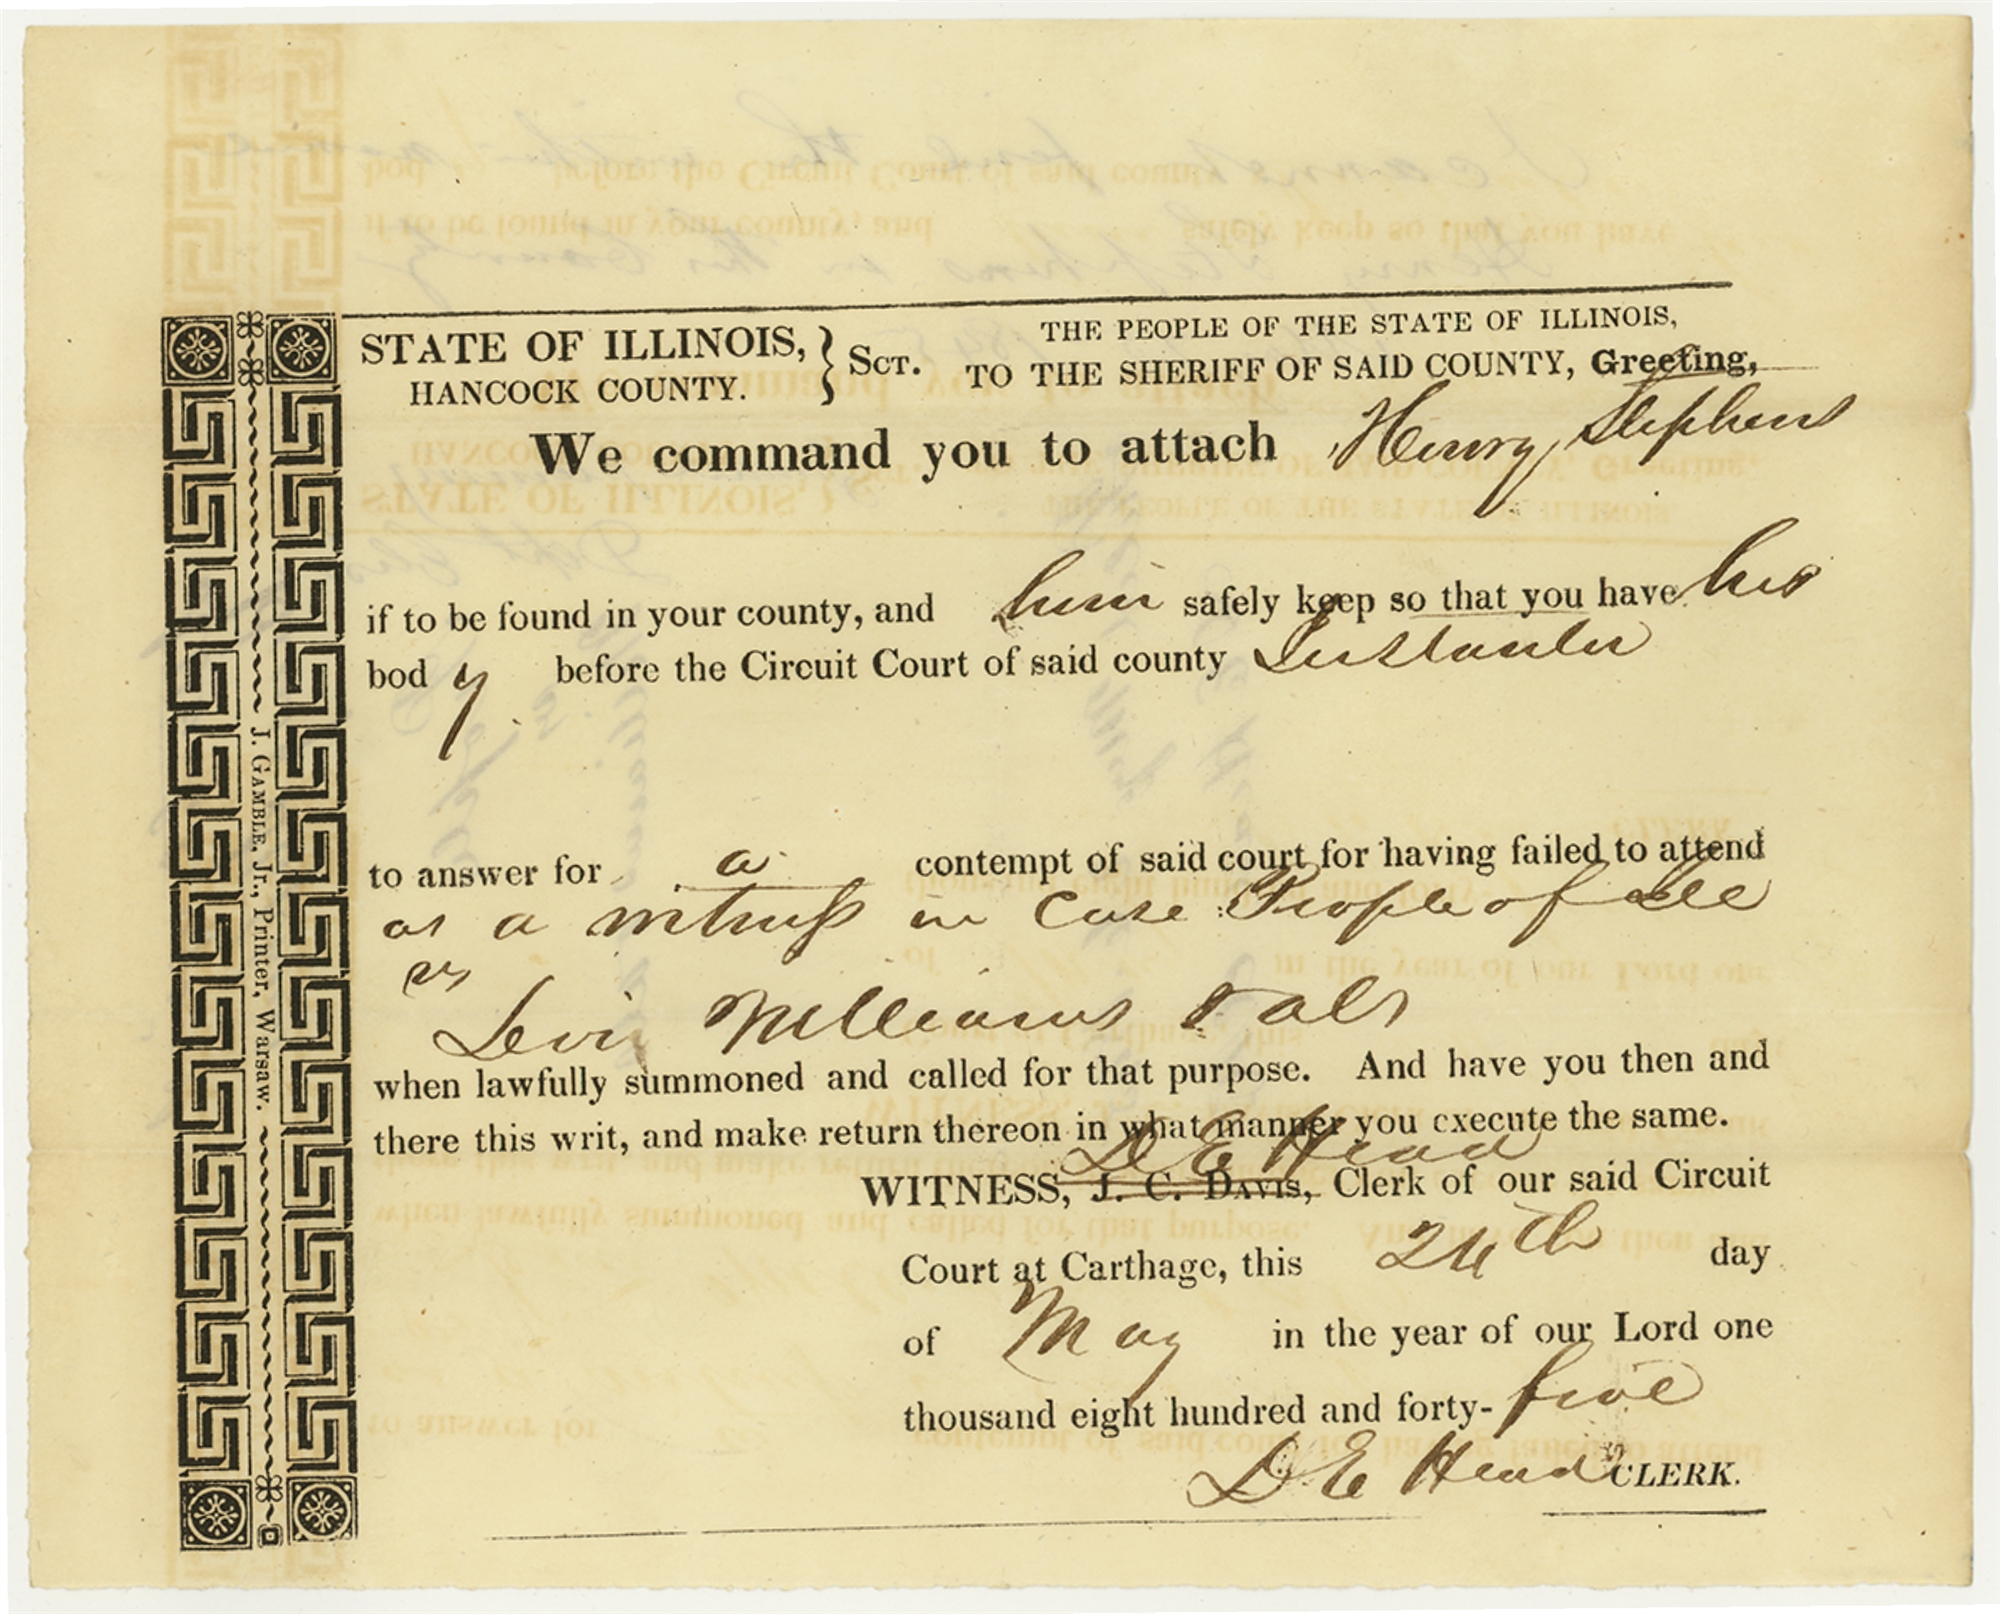 STATE OF ILLINOIS, } Sct. THE PEOPLE OF THE STATE OF ILLINOIS,
HANCOCK COUNTY. TO THE SHERIFF OF SAID COUNTY, Greeting,
We command you to attach Henry Stephens
if to be found in your county, and him safely keep so that you have his
bod y before the Circuit Court of said county Instanter
to answer for a contempt of said court for having failed to attend
as a witness in Case People of Ill
vs
Levi Williams & als
when lawfully summoned and called for that purpose. And have you then and
there this writ, and make return thereon in what manner you execute the same.
D E Head
WITNESS, J. C. Davis, Clerk of our said Circuit
Court at Carthage, this 24th day
of May in the year of our Lord one
thousand eight hundred and forty- five
D E Head CLERK.
J. Gamble, Jr., Printer, Warsaw.